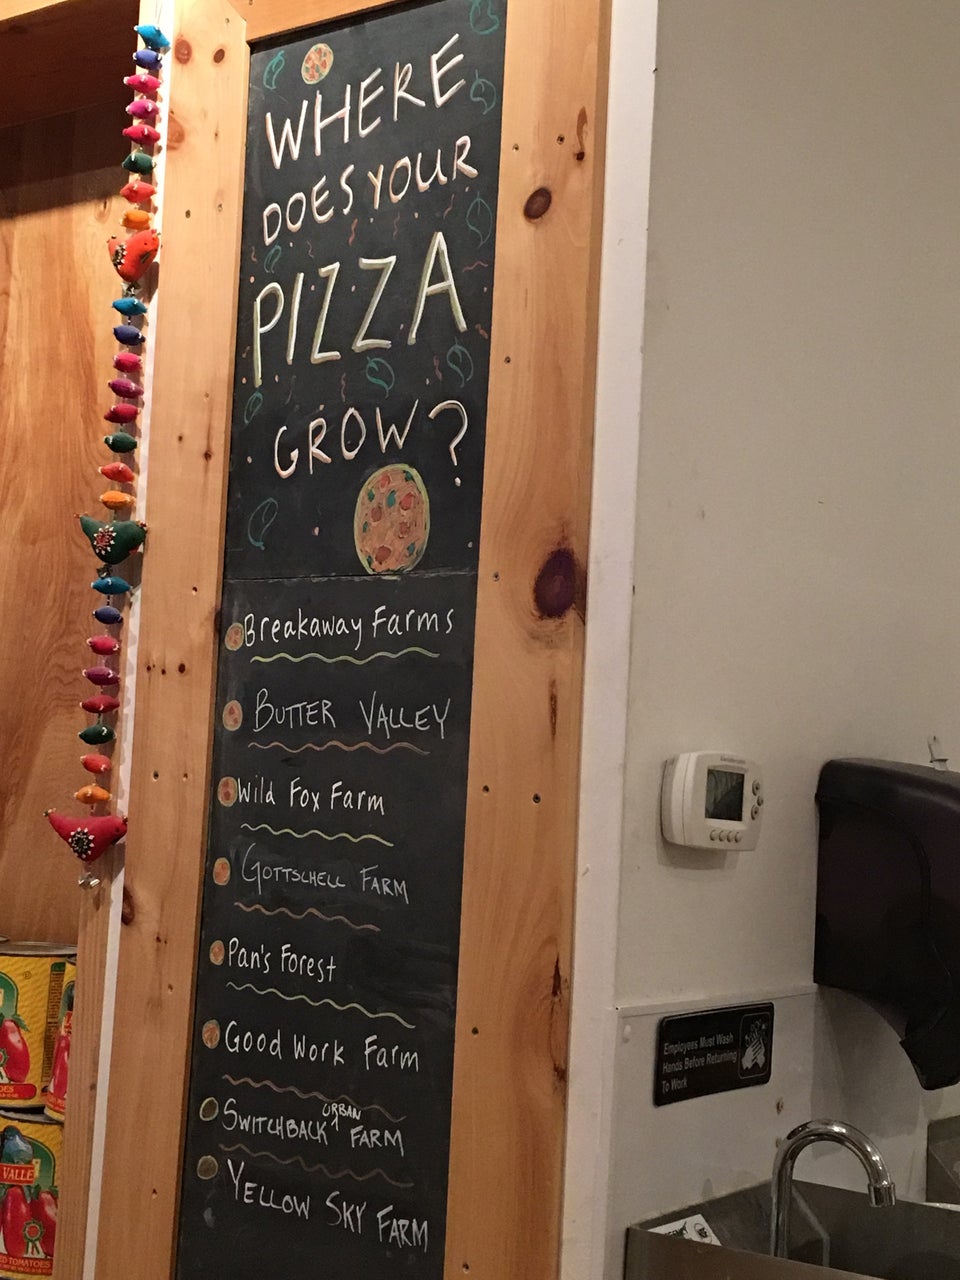 WHERE
DOES YOUR
PIZZA
GROW?
Breakaway Farms
BUTTER VALLEY
Wild Fox Farm
GOTTSCHELL FARM
Pan's Forest
Good Work Farm
SWITCHBACK URBAN FARM
YELLOW SKY FARM
Employees Must Wash
Hands Before Returning
To Work
VALLE
TOMATOES